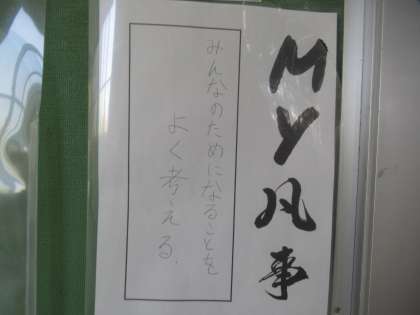 MY凡事
みんなのためになることを
よく考える.